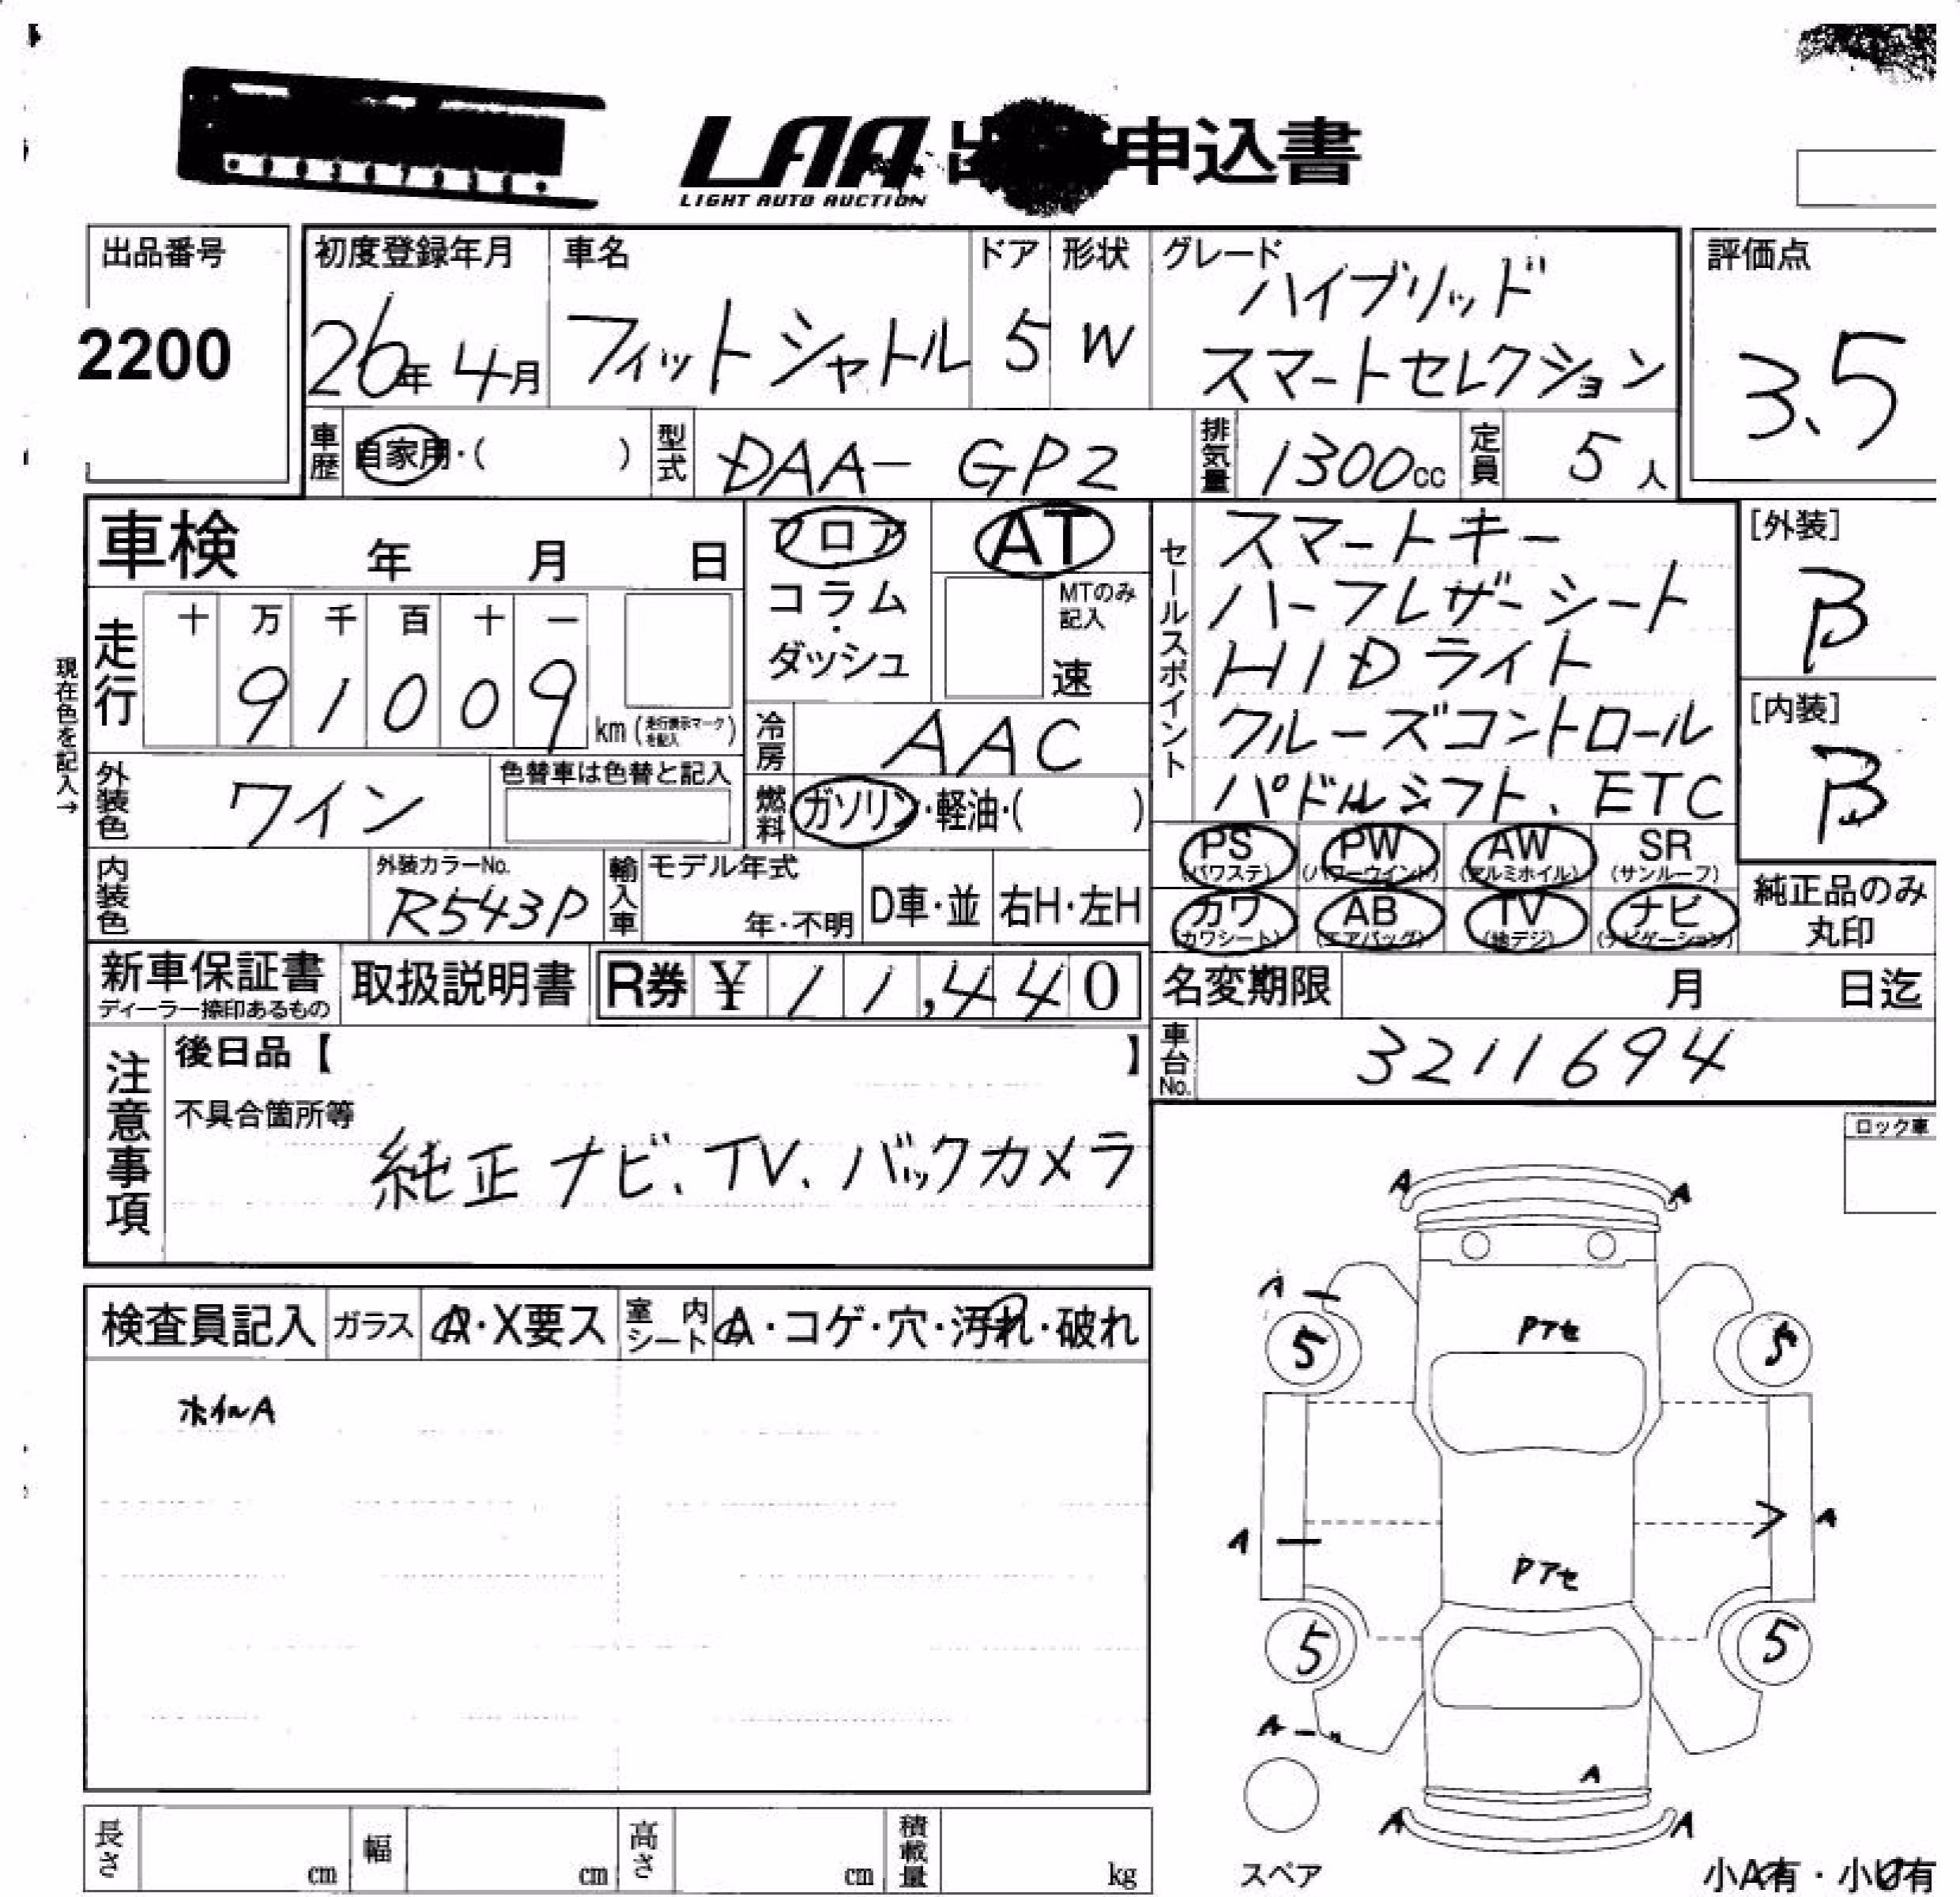 LAA 申込書
LIGHT AUTO AUCTION
出品番号
2200
初度登録年月
26年 4月
車名
フィットシャトル
ドア
5
形状
W
グレード
ハイブリッド
スマートセレクション
評価点
3.5
車歴
自家用・( )
型式
DAA- GP2
排気量
1300cc
定員
5人
車検 年 月 日
フロア
コラム
・
ダッシュ
AT
MTのみ
記入
速
セールスポイント
スマートキー
ハーフレザーシート
HIDライト
クルーズコントロール
パドルシフト、ETC
[外装]
B
[内装]
B
現在色を記入→
走行
十 万 千 百 十 一
9 1 0 0 9
km (走行表示マークを記入)
冷房
AAC
外装色
ワイン
色替車は色替と記入
燃料
ガソリン・軽油・( )
PS
(パワステ)
PW
(パワーウインド)
AW
(アルミホイル)
SR
(サンルーフ)
カワ
(カワシート)
AB
(エアバッグ)
TV
(地デジ)
ナビ
(ナビゲーション)
純正品のみ
丸印
内装色
外装カラーNo.
R543P
輸入車
モデル年式
年・不明
D車・並
右H・左H
新車保証書
ディーラー捺印あるもの
取扱説明書
R券 ¥ 11,440
名変期限 月 日迄
車台No.
3211694
注意事項
後日品【 】
不具合箇所等
純正ナビ、TV、バックカメラ
ロック車
検査員記入
ガラス
A・X要ス
室内シート
A・コゲ・穴・汚れ・破れ
ホイルA
A
A
A
5
5
Pアセ
A
A
Pアセ
5
5
A
A
A
A
スペア
小A有・小U有
長さ cm
幅 cm
高さ cm
積載量 kg